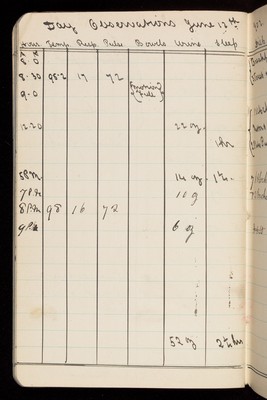 Day Observations June 12th
Hour Temp. Resp. Pulse Bowels Urine Sleep
8.0
8.30 98.2 17 72
9.0
12.20 22 oz.
1 hr
5 P.M. 14 oz. 1 hr.
7 P.M. 10 oz
8 P.M. 98 16 72
9 P.M. 6 oz
52 oz 2½ hrs